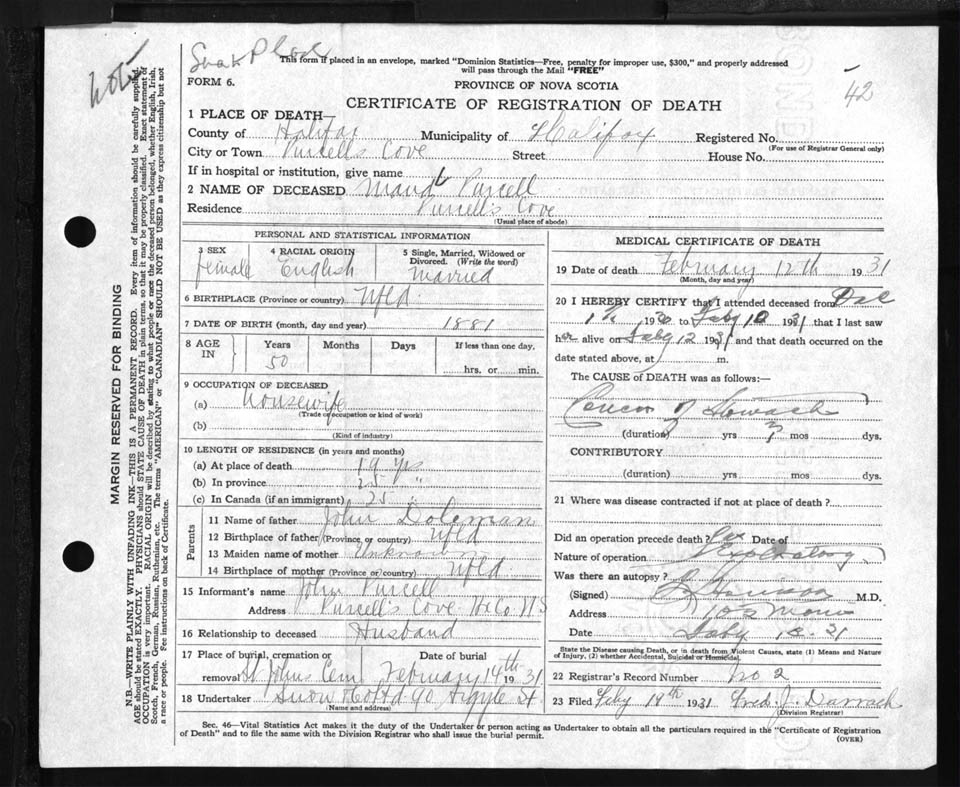 This form if placed in an envelope, marked "Dominion Statistics—Free, penalty for improper use, $300," and properly addressed
will pass through the Mail "FREE"
FORM 6.
PROVINCE OF NOVA SCOTIA
42
CERTIFICATE OF REGISTRATION OF DEATH
1 PLACE OF DEATH—
County of Halifax Municipality of Halifax Registered No.
(For use of Registrar General only)
City or Town Purcell's Cove Street House No.
If in hospital or institution, give name
2 NAME OF DECEASED Maud Purcell
Residence Purcell's Cove
(Usual place of abode)
PERSONAL AND STATISTICAL INFORMATION
3 SEX female 4 RACIAL ORIGIN English 5 Single, Married, Widowed or Divorced. (Write the word) married
6 BIRTHPLACE (Province or country) Nfld
7 DATE OF BIRTH (month, day and year) 1881
8 AGE IN Years 50 Months Days If less than one day, hrs. or min.
9 OCCUPATION OF DECEASED
(a) Housewife
(Trade occupation or kind of work)
(b)
(Kind of industry)
10 LENGTH OF RESIDENCE (in years and months)
(a) At place of death 19 yrs
(b) In province 25 "
(c) In Canada (if an immigrant) 25 "
Parents
11 Name of father John Doleman
12 Birthplace of father (Province or country) Nfld
13 Maiden name of mother Unknown
14 Birthplace of mother (Province or country) Nfld
15 Informant's name John Purcell
Address Purcell's Cove Hx Co NS
16 Relationship to deceased Husband
17 Place of burial, cremation or removal St Johns Cem Date of burial February 14th 1931
18 Undertaker Snow & Co Ltd 90 Argyle St
(Name and address)
MEDICAL CERTIFICATE OF DEATH
19 Date of death February 12th 1931
(Month, day and year)
20 I HEREBY CERTIFY that I attended deceased from Dec
1930 to Feby 12 1931 that I last saw
her alive on Feby 12 1931 and that death occurred on the
date stated above, at m.
The CAUSE of DEATH was as follows:—
Cancer of Stomach
(duration) yrs 3 mos dys.
CONTRIBUTORY
(duration) yrs mos dys.
21 Where was disease contracted if not at place of death?
Did an operation precede death? Yes Date of
Nature of operation Exploratory
Was there an autopsy?
(Signed) M.D.
Address
Date Feby 31
State the Disease causing Death, or in death from Violent Causes, state (1) Means and Nature
of Injury, (2) whether Accidental, Suicidal or Homicidal.
22 Registrar's Record Number No 2
23 Filed Feby 14th 1931 Fred. J. Darrach
(Division Registrar)
Sec. 46—Vital Statistics Act makes it the duty of the Undertaker or person acting as Undertaker to obtain all the particulars required in the "Certificate of Registration
of Death" and to file the same with the Division Registrar who shall issue the burial permit.
(OVER)
MARGIN RESERVED FOR BINDING
N.B.—WRITE PLAINLY WITH UNFADING INK—THIS IS A PERMANENT RECORD. Every item of information should be carefully supplied.
AGE should be stated EXACTLY. PHYSICIANS should STATE CAUSE OF DEATH in plain terms, so that it may be properly classified. Exact statement of
OCCUPATION is very important. RACIAL ORIGIN will be described by stating to what people or race the deceased person belonged, whether English, Irish,
Scotch, French, German, Russian, Ruthenian, etc. The terms "AMERICAN" or "CANADIAN" SHOULD NOT BE USED as they express citizenship but not
a race or people. Fee instructions on back of Certificate.